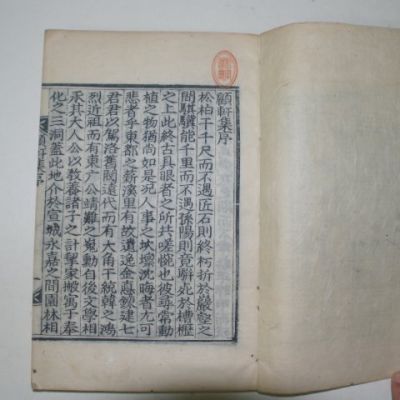 顧軒集序
松栢干千尺而不遇匠石則終朽折於巖壑之
間騏驥能千里而不遇孫陽則竟騈死於槽櫪
之上此終古具眼者之所共嗟惋也彼尋常動
植之物猶尚如是况人事之坎壈沈晦者尤可
悲者乎東都之薪溪里有故逸金公建七
君君以駕洛舊閥遠代而有大角干統韓之鴻
烈近祖而有東广公靖難之嵬勳自後文學相
承其大人公以敎養諸子之計挈家搬寓于奉
化之三洞盖此地介於宣城永嘉之間園林相
顧軒集序